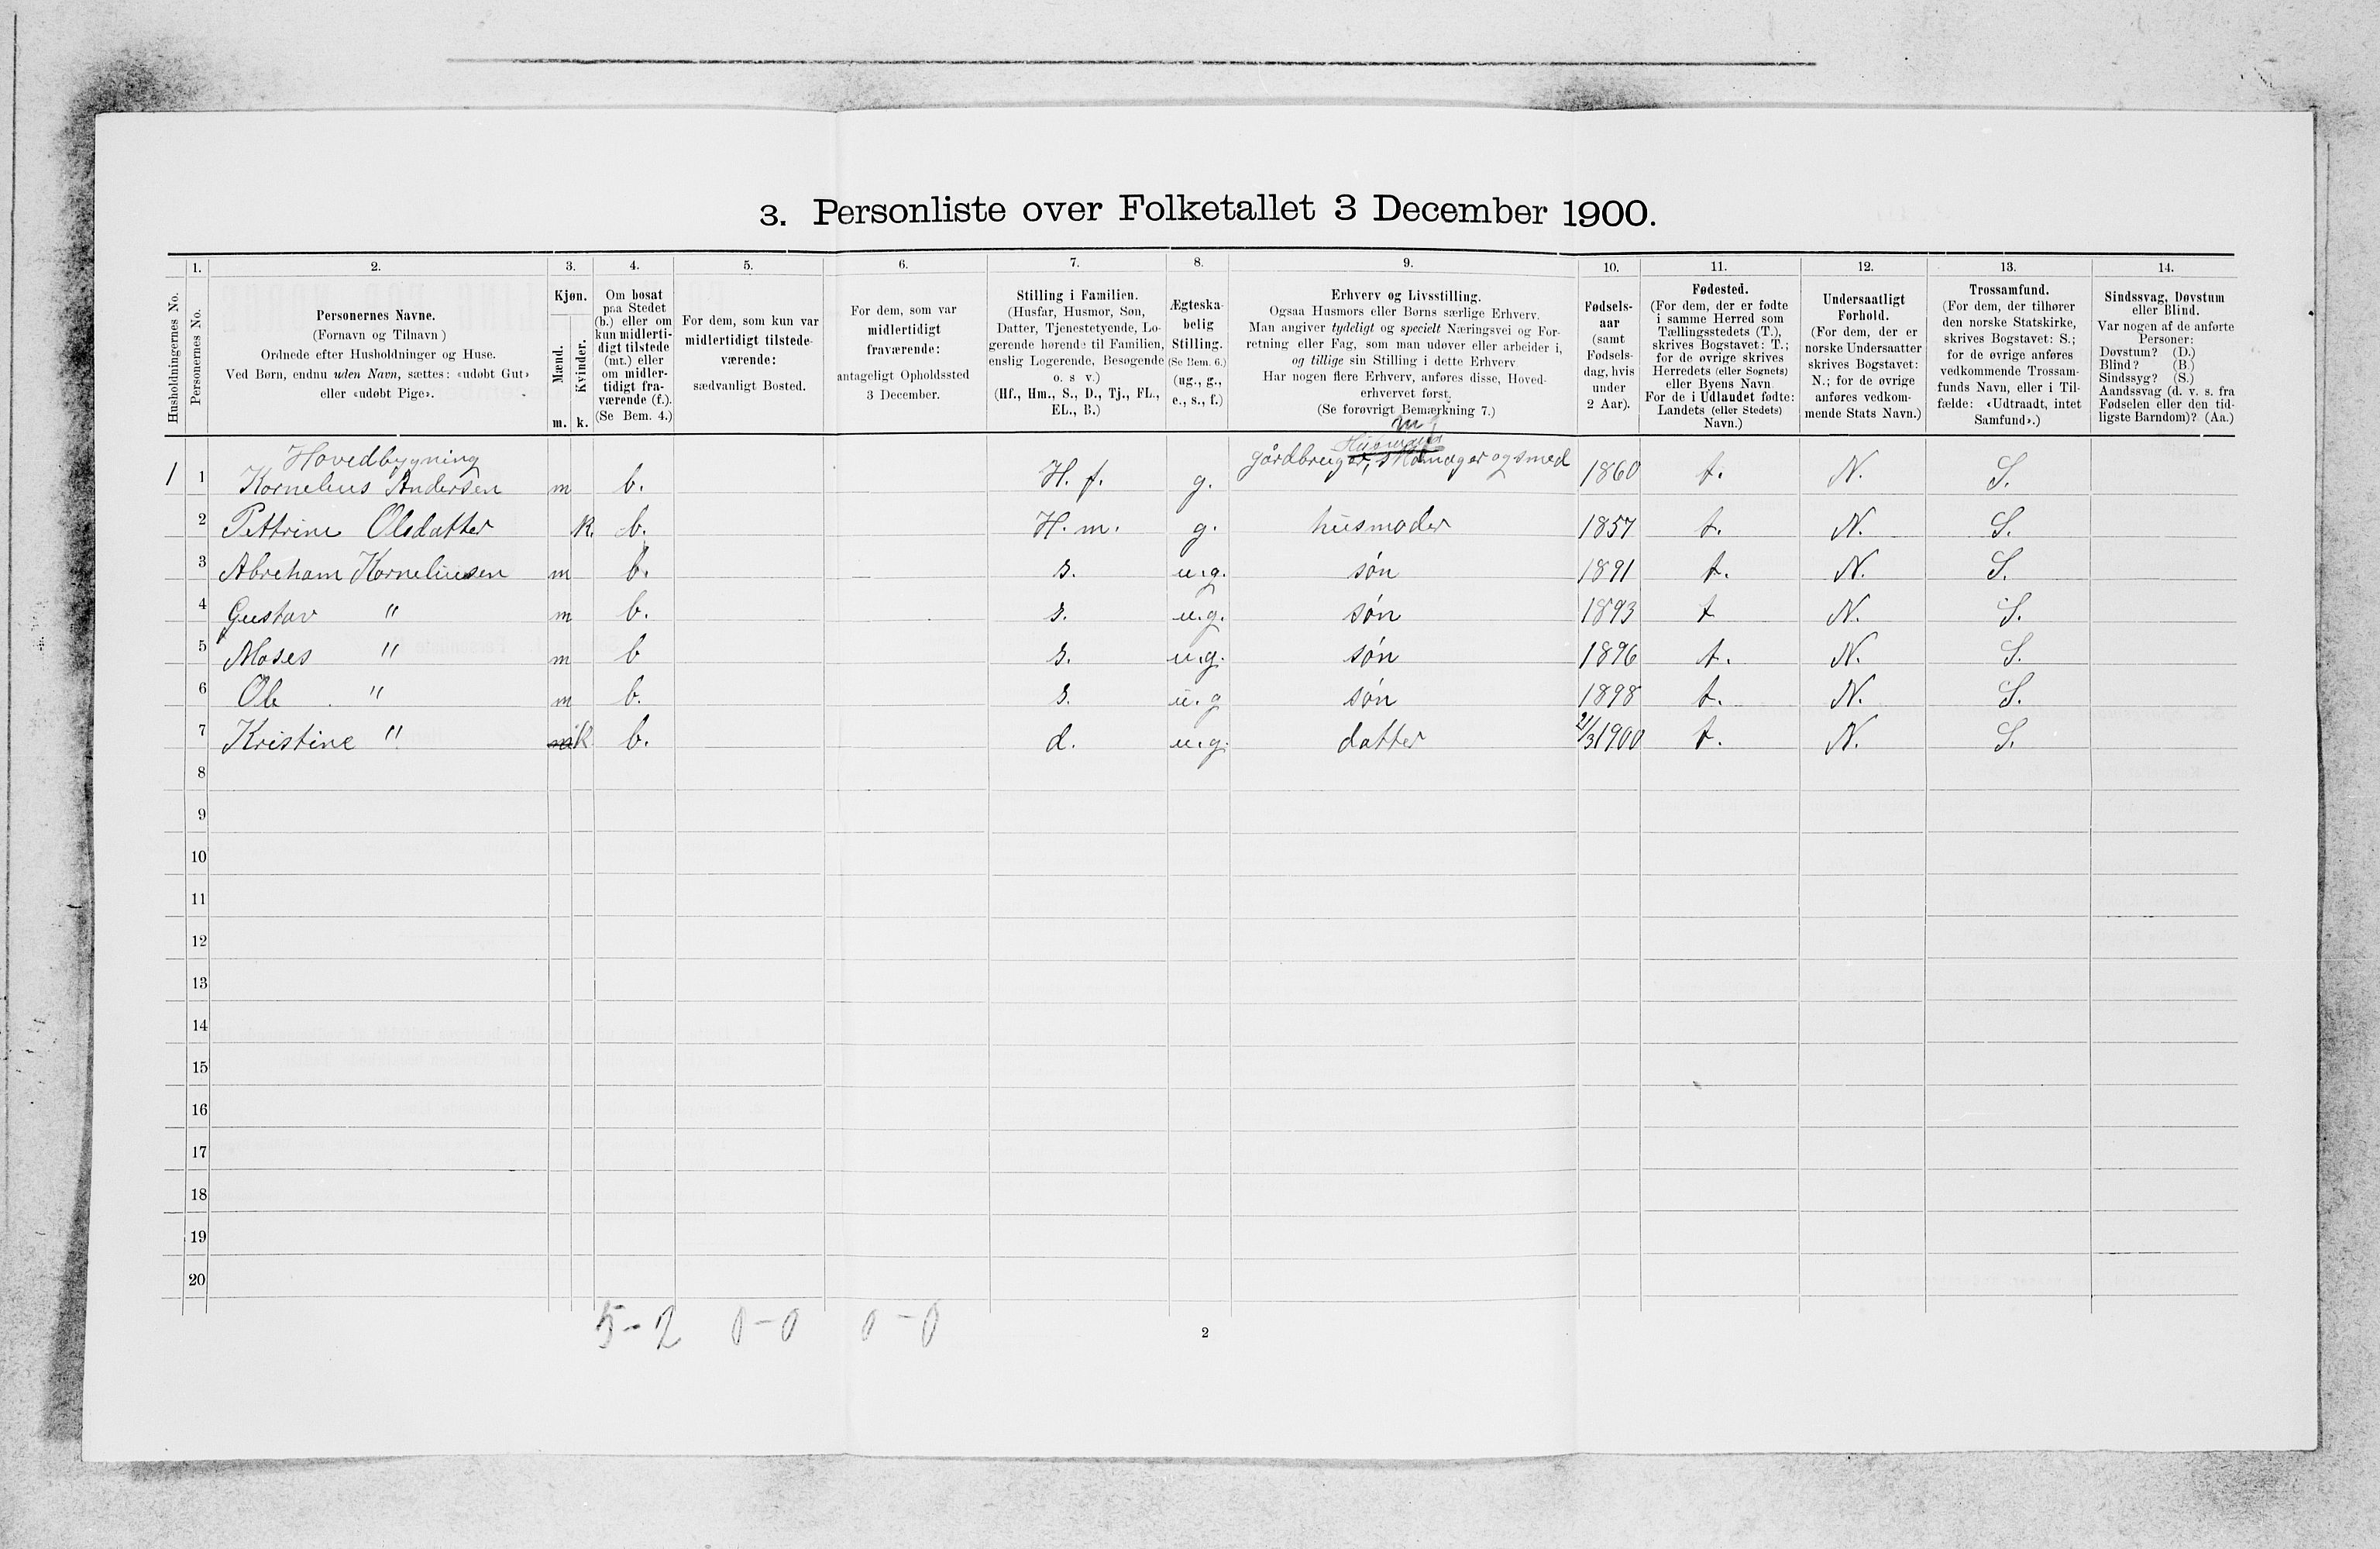 3. Personliste over Folketallet 3 December 1900.
1. 2. 3. 4. 5. 6. 7. 8. 9. 10. 11. 12. 13. 14.
Husholdningernes No.
Personernes No.
Personernes Navne.
(Fornavn og Tilnavn )
Ordnede efter Husholdninger og Huse.
Ved Børn, endnu uden Navn, sættes: «udøbt Gut»
eller «udøbt Pige».
Kjøn.
Mænd.
Kvinder.
m. k.
Om bosat
paa Stedet
(b.) eller om
kun midlerti-
digt tilstede
(mt.) eller
om midler-
tidigt fra-
værende (f.).
(Se Bem. 4.)
For dem, som kun var
midlertidigt tilstede-
værende:
sædvanligt Bosted.
For dem, som var
midlertidigt
fraværende:
antageligt Opholdssted
3 December.
Stilling i Familien.
(Husfar, Husmor, Søn,
Datter, Tjenestetyende, Lo-
gerende hørende til Familien,
enslig Logerende, Besøgende
o. s v.)
(Hf., Hm., S., D., Tj., FL.,
EL., B.)
Ægteska-
belig
Stilling.
(Se Bem. 6.)
(ug., g.,
e., s., f.)
Erhverv og Livsstilling.
Ogsaa Husmors eller Børns særlige Erhverv.
Man angiver tydeligt og specielt Næringsvei og For-
retning eller Fag, som man udøver eller arbeider i,
og tillige sin Stilling i dette Erhverv
Har nogen flere Erhverv, anføres disse, Hoved-
erhvervet først.
(Se forøvrigt Bemærkning 7.)
Fødsels-
aar
(samt
Fødsels-
dag, hvis
under
2 Aar).
Fødested.
(For dem, der er fødte
i samme Herred som
Tællingsstedets (T.),
skrives Bogstavet: T.;
for de øvrige skrives
Herredets (eller Sognets)
eller Byens Navn
For de i Udlandet fødte:
Landets (eller Stedets)
Navn.)
Undersaatligt
Forhold.
(For dem, der er
norske Undersaatter
skrives Bogstavet:
N.; for de øvrige
anføres vedkom-
mende Stats Navn.)
Trossamfund.
(For dem, der tilhører
den norske Statskirke,
skrives Bogstavet: S.;
for de øvrige anføres
vedkommende Trossam-
funds Navn, eller i Til-
fælde: «Udtraadt, intet
Samfund».)
Sindssvag, Døvstum
eller Blind.
Var nogen af de anførte
Personer:
Døvstum? (D.)
Blind? (B.)
Sindssyg? (S.)
Aandssvag (d. v. s. fra
Fødselen eller den tid-
ligste Barndom)? (Aa.)
Hovedbygning
1 1 Kornelius Andersen m b. H. f. g. gårdbruger, skomager og smed 1860 t. N. S.
2 Pettrine Olsdatter k. b. H. m. g. husmoder 1857 t. N. S.
3 Abreham Korneliusen m b. s. u.g. søn 1891 t. N. S.
4 Gustav " m b. s. u.g. søn 1893 t N. S.
5 Moses " m b s. u.g. søn 1896 t. N. S.
6 Ole " m b. s. u.g søn 1898 t. N. S.
7 Kristine " m k b. d. u.g. datter 21/3 1900 t. N. S.
8
9
10
11
12
13
14
15
16
17
18
19
20
5-2 0-0 0-0
2